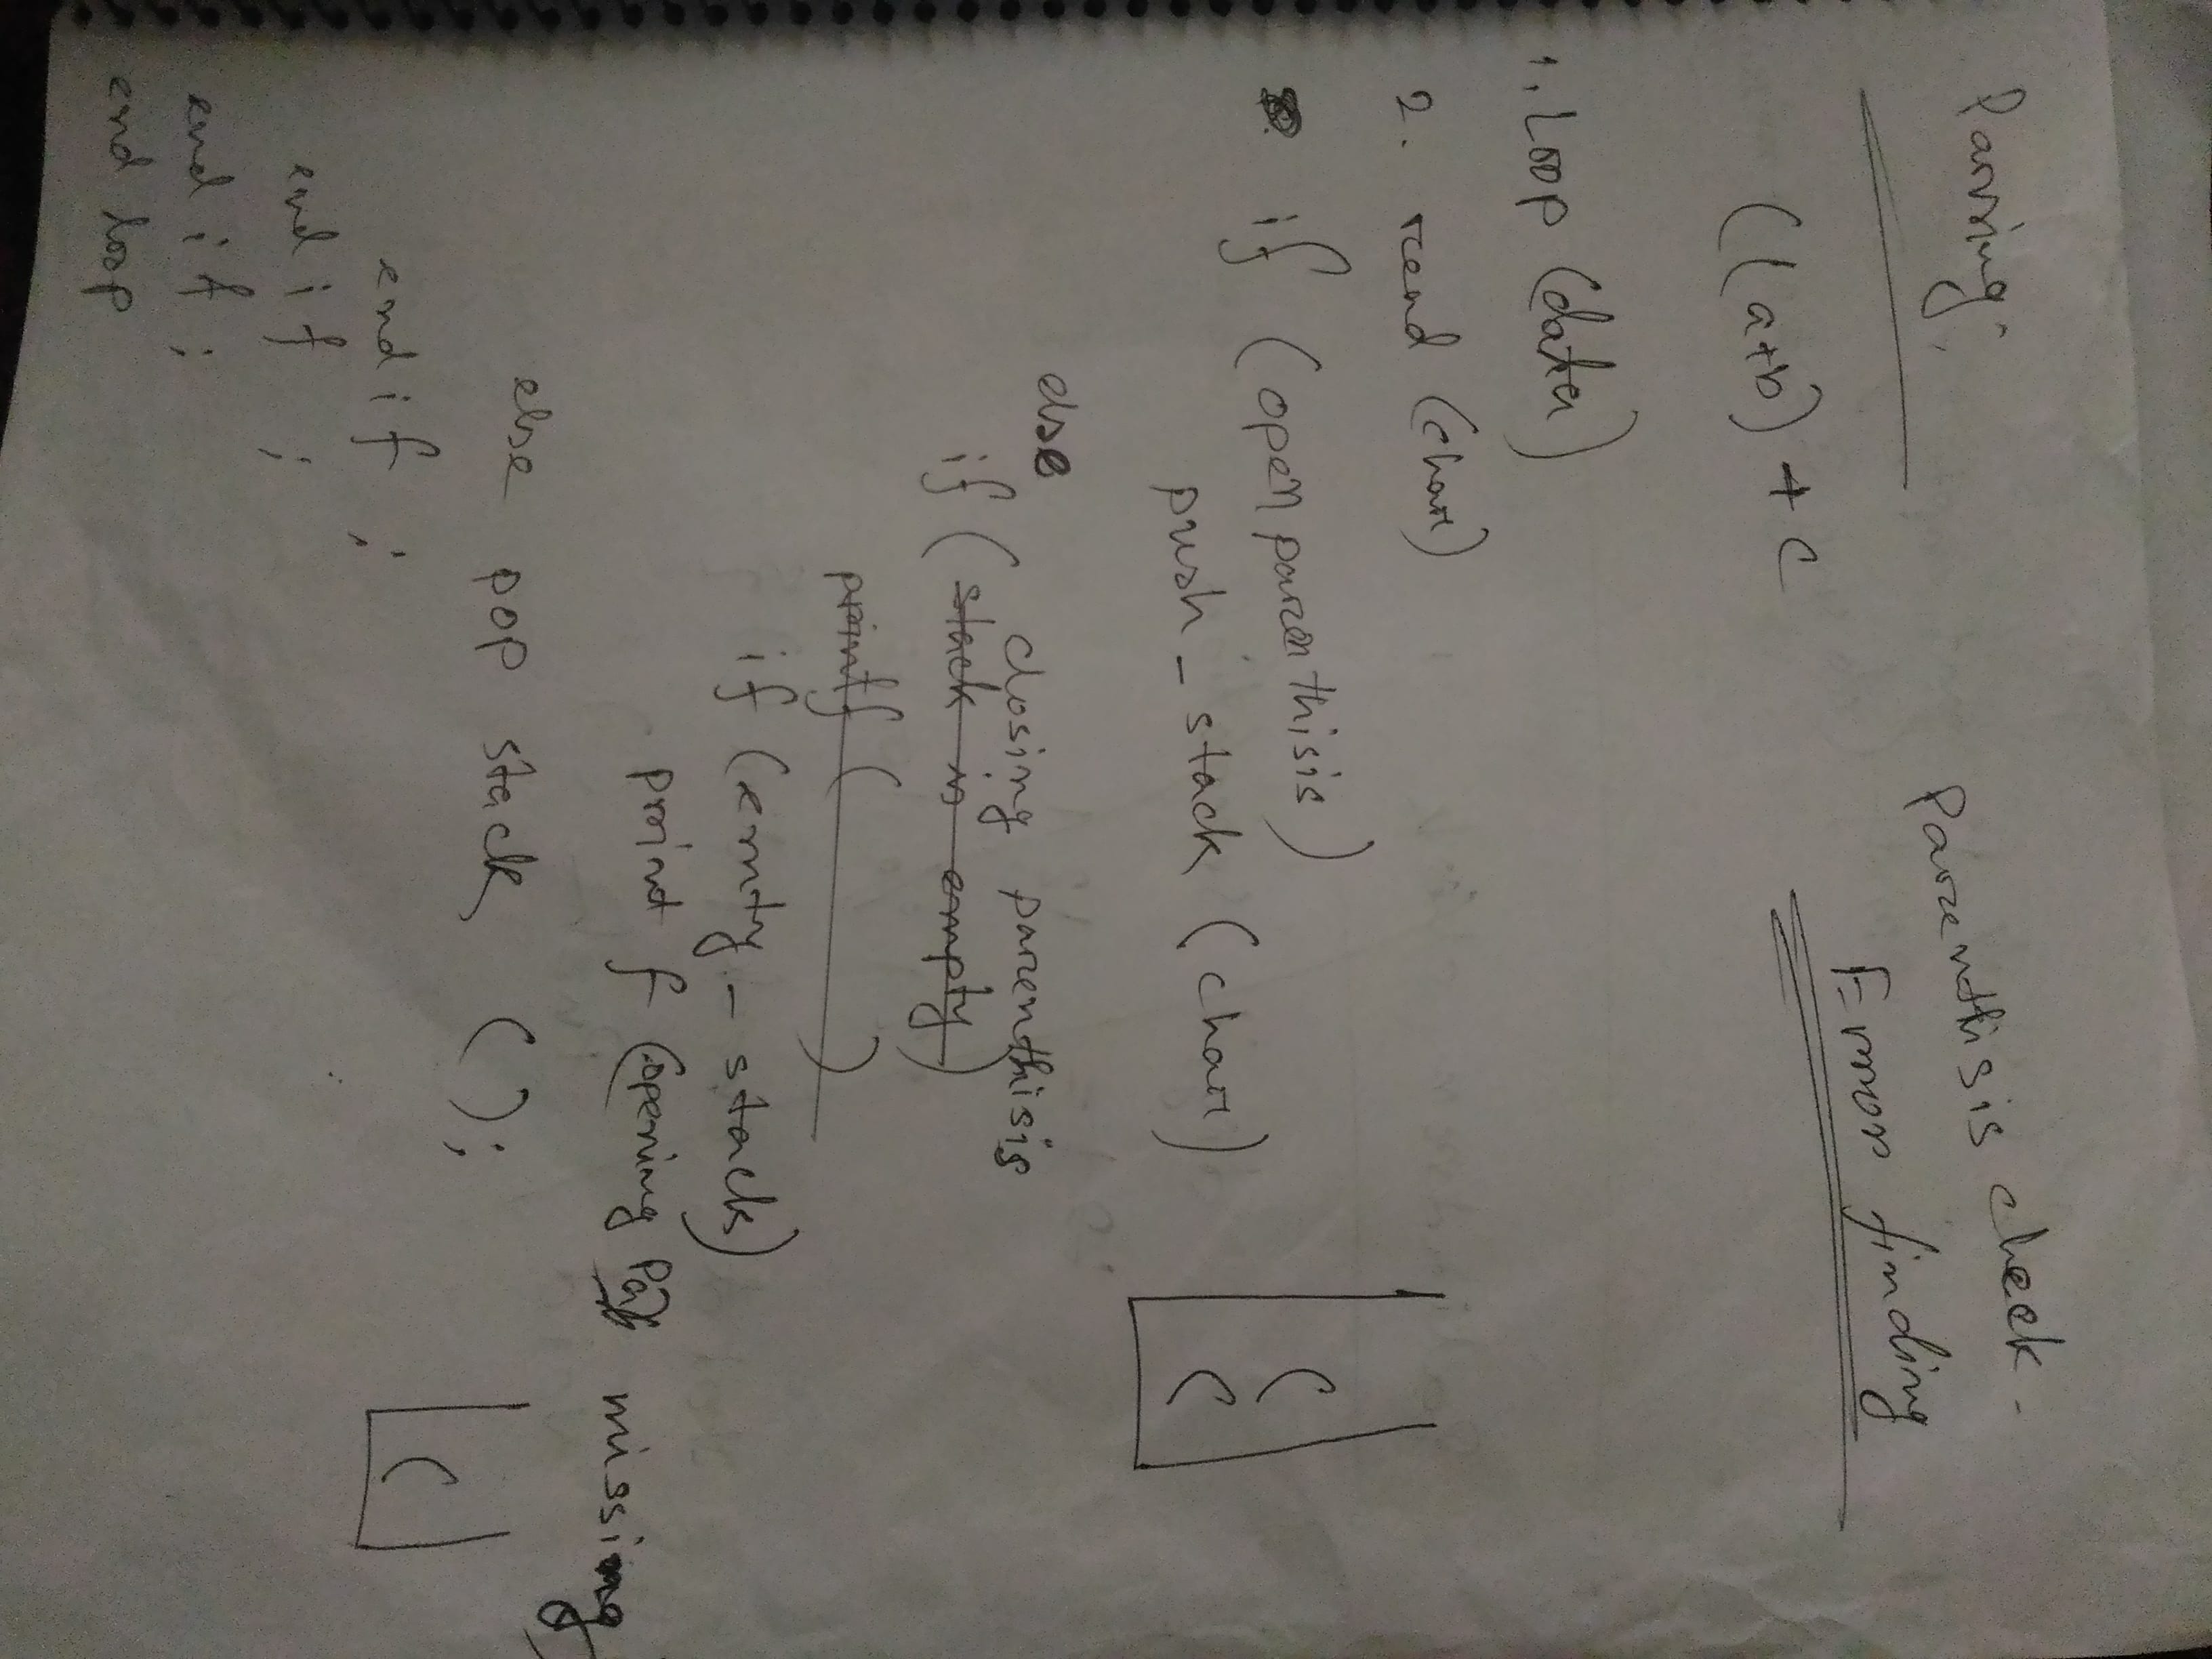 Parsing:
Parenthisis check.
Error finding
((a+b) + c
1. Loop (data)
2. read (char)
if (open parenthisis)
push_stack (char)
(
(
else
closing parenthisis
if (stack is empty)
printf ( )
if (emty_stack)
printf (opening Par missing)
else pop stack ();
(
end if ;
end if ;
end if ;
end loop